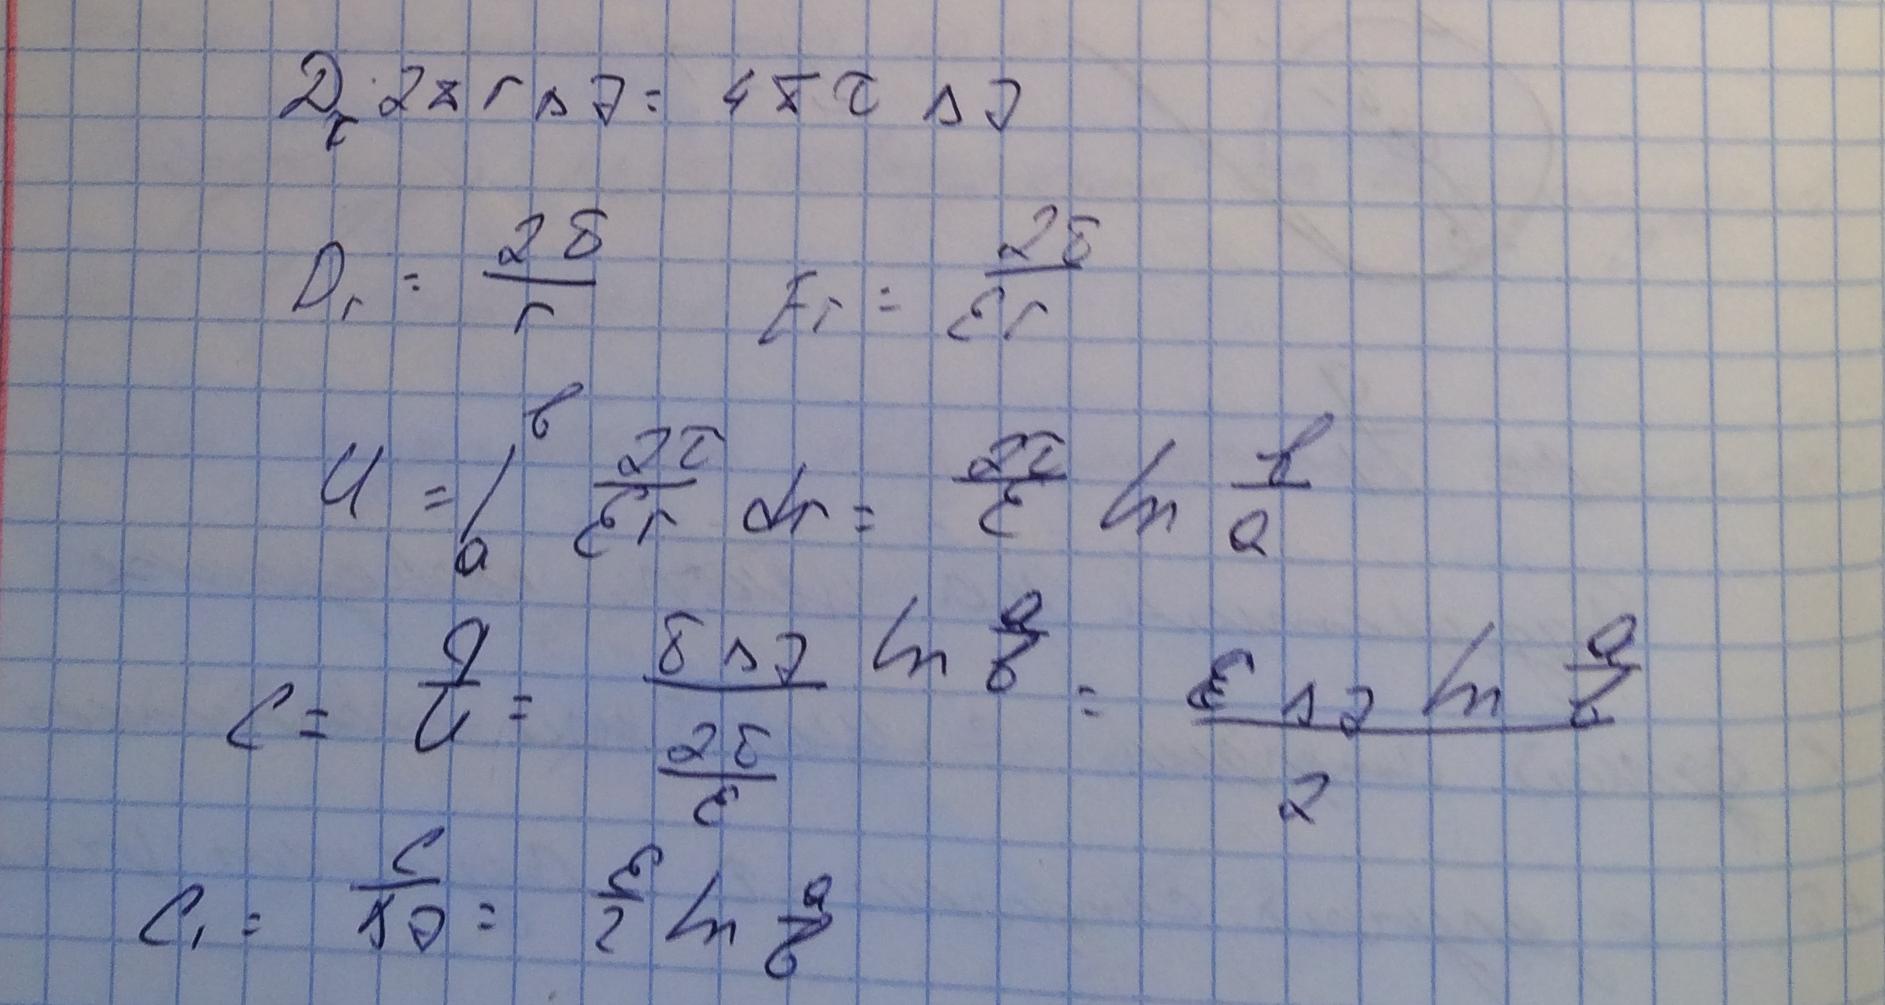 D_r · 2π r Δз = 4π τ Δз
D_r = 2τ / r    E_r = 2τ / εr
U = ∫_a^b 2τ / εr dr = 2τ / ε ln b / a
C = q / U = τ Δз ln a / b / (2τ / ε) = ε Δз ln a / b / 2
C_1 = C / Δз = ε / 2 ln a / b